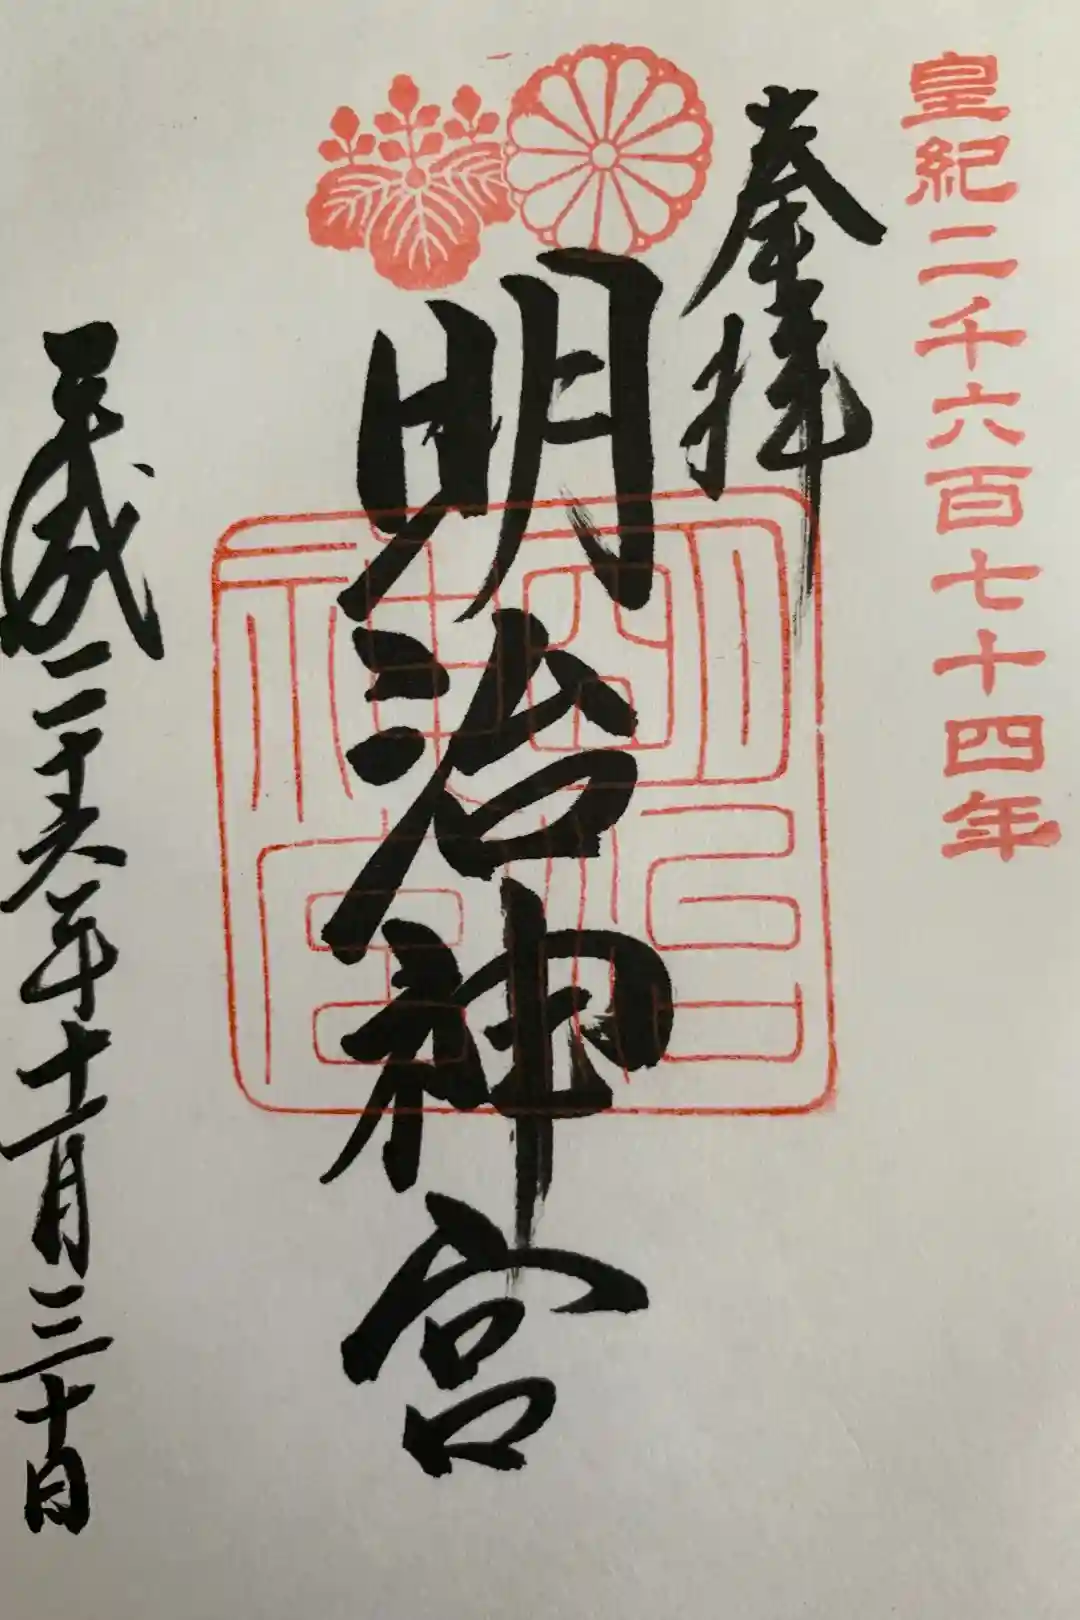 皇紀二千六百七十四年
奉拝
明治神宮
明治
神宮
平成二十六年十一月三十日